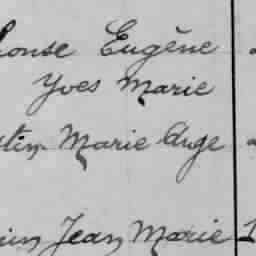 honse Eugène
Yves Marie
stin Marie Ange
Jean Marie 1